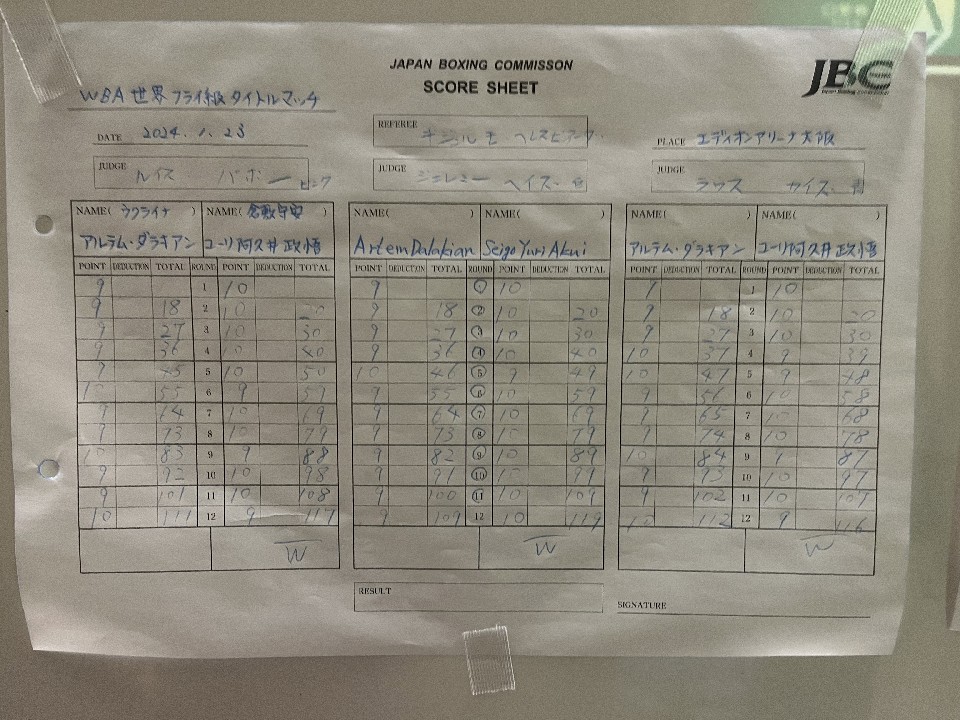 JAPAN BOXING COMMISSON
SCORE SHEET
JBC
Japan Boxing Commission
WBA 世界フライ級タイトルマッチ
DATE 2024.1.23
REFEREE
PLACE エディオンアリーナ大阪
JUDGE ルイス パボン ピンク
JUDGE ジェレミー ヘイズ 白
JUDGE
NAME( ウクライナ ) NAME( 倉敷守安 ) NAME( ) NAME( ) NAME( ) NAME( )
アルテム・ダラキアン ユーリ阿久井政悟 Artem Dalakian Seigo Yuri Akui アルテム・ダラキアン ユーリ阿久井政悟
POINT DEDUCTION TOTAL ROUND POINT DEDUCTION TOTAL POINT DEDUCTION TOTAL ROUND POINT DEDUCTION TOTAL POINT DEDUCTION TOTAL ROUND POINT DEDUCTION TOTAL
9 1 10 9 1 10 9 1 10
9 18 2 10 20 9 18 2 10 20 9 18 2 10 20
9 27 3 10 30 9 27 3 10 30 9 27 3 10 30
9 36 4 10 40 9 36 4 10 40 10 37 4 9 39
9 45 5 10 50 10 46 5 9 49 10 47 5 9 48
10 55 6 9 59 9 55 6 10 59 9 56 6 10 58
9 64 7 10 69 9 64 7 10 69 9 65 7 10 68
9 73 8 10 79 9 73 8 10 79 9 74 8 10 78
10 83 9 9 88 9 82 9 10 89 10 84 9 9 87
9 92 10 10 98 9 91 10 10 99 9 93 10 10 97
9 101 11 10 108 9 100 11 10 109 9 102 11 10 107
10 111 12 9 117 9 109 12 10 119 10 112 12 9 116
W W W
RESULT
SIGNATURE